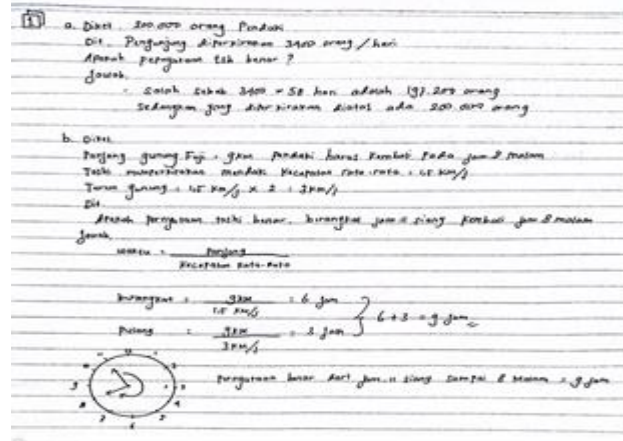 1
a. Diket. 200.000 orang Pendaki
Dit. Pengunjung diperkirakan 3400 orang / hari
Apakah pernyataan tsb benar ?
Jawab.
- Salah sebab 3400 × 58 hari adalah 197.200 orang
Sedangkan yang diperkirakan diatas ada 200.000 orang
b. Diket
Panjang gunung Fuji : 9km Pendaki harus kembali Pada jam 8 malam
Toshi memperkirakan mendaki kecepatan rata-rata : 1,5 km/j
Turun gunung : 1,5 km/j × 2 : 3km/j
Dit
Apakah pernyataan toshi benar. berangkat jam 11 siang kembali jam 8 malam
Jawab.
waktu : Panjang
Kecepatan Rata-Rata
berangkat : 9km : 6 jam
1,5 km/j
6 + 3 = 9 jam
Pulang : 9km : 3 jam
3km/j
Pernyataan benar dari jam 11 siang sampai 8 malam = 9 jam